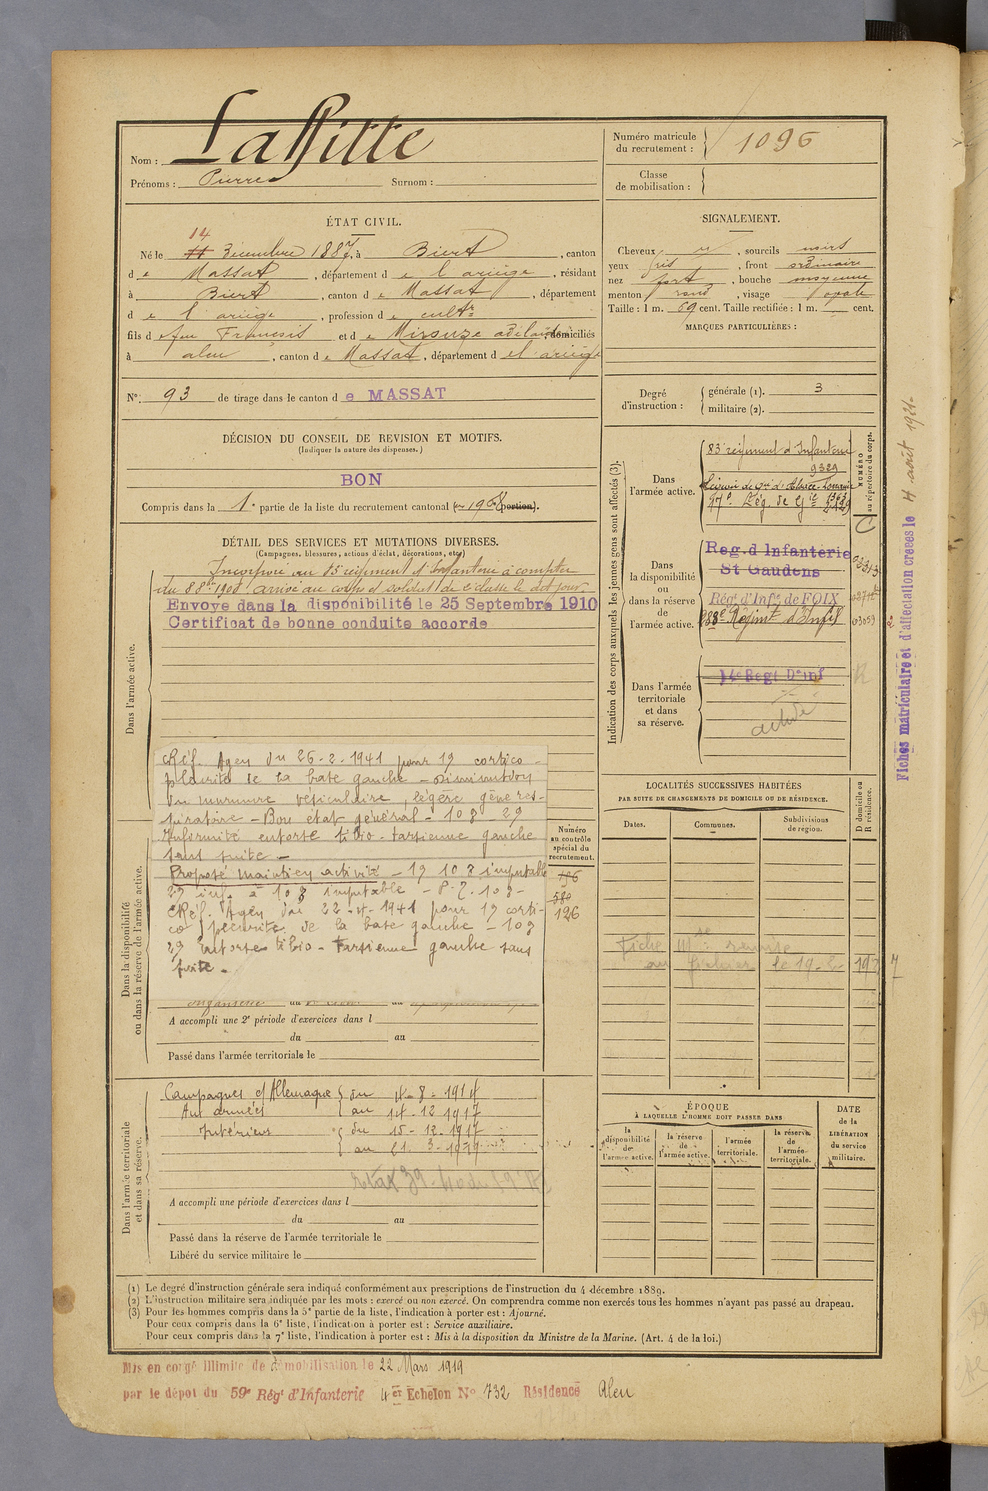 Nom : Laffitte
Prénoms : Pierre Surnom :
Numéro matricule
du recrutement : 1096
Classe
de mobilisation :
ÉTAT CIVIL.
14
Né le 11 Décembre 1887, à Biert, canton
de Massat, département de l'ariège, résidant
à Biert, canton de Massat, département
de l'ariège, profession de cultr
fils de feu François et de Mirouze adelaïde, domiciliés
à aleu, canton de Massat, département de l'ariège
SIGNALEMENT.
Cheveux , sourcils noirs
yeux gris, front ordinaire
nez fort, bouche moyenne
menton rond, visage ovale
Taille : 1 m. 69 cent. Taille rectifiée : 1 m. cent.
MARQUES PARTICULIÈRES :
N° : 93 de tirage dans le canton de MASSAT
Degré
d'instruction :
générale (1). 3
militaire (2).
DÉCISION DU CONSEIL DE REVISION ET MOTIFS.
(Indiquer la nature des dispenses.)
BON
Compris dans la 1e partie de la liste du recrutement cantonal ( 1908 portion).
DÉTAIL DES SERVICES ET MUTATIONS DIVERSES.
(Campagnes, blessures, actions d'éclat, décorations, etc.)
Dans l'armée active.
Incorporé au régiment d'Infanterie à compter
du 8 8bre 1908 arrivé au corps et soldat de 2e classe le dit jour.
Envoyé dans la disponibilité le 25 Septembre 1910
Certificat de bonne conduite accordé
Réf. Agen du 26-2-1941 pour 1º cortico-
pleurite de la base gauche - Diminution
du murmure vésiculaire, légère gêne res-
piratoire - Bon état général - 10 % - 2º
Infirmité entorse tibio-tarsienne gauche
sans suite -
Proposé maintien activité - 1º 10 % imputable
2º inf. à 10 % imputable -
Réf. Agen du 22 1941 pour 1º corti-
co pleurite de la base gauche - 10 %
2º entorse tibio-tarsienne gauche sans
suite -
Dans la disponibilité
ou dans la réserve de l'armée active.
Numéro
au contrôle
spécial du
recrutement.
196
580
126
A accompli une 2e période d'exercices dans l
du au
Passé dans l'armée territoriale le
Dans l'armée territoriale
et dans sa réserve.
Campagnes d'Allemagne du 4-8-1914
Aux armées au 14-12 1917
Intérieur du 15-12-1917
au 21 3-1919
A accompli une période d'exercices dans l
du au
Passé dans la réserve de l'armée territoriale le
Libéré du service militaire le
Indication des corps auxquels les jeunes gens sont affectés (3).
Dans
l'armée active.
83e régiment d'Infanterie
9329
NUMÉRO
au répertoire du corps.
C
Dans
la disponibilité
ou
dans la réserve
de
l'armée active.
Reg. d Infanterie
St Gaudens
Régt d'Infie de FOIX
Régimt d'Infie
Dans l'armée
territoriale
et dans
sa réserve.
14e Regt D'inf
LOCALITÉS SUCCESSIVES HABITÉES
PAR SUITE DE CHANGEMENTS DE DOMICILE OU DE RÉSIDENCE.
Dates. Communes. Subdivisions
de région. D domicile ou
R résidence.
Fiche remise
au le 19-2- 193
ÉPOQUE
À LAQUELLE L'HOMME DOIT PASSER DANS
la
disponibilité
de
l'armée active.
la réserve
de
l'armée active.
l'armée
territoriale.
la réserve
de
l'armée
territoriale.
DATE
de la
LIBÉRATION
du service
militaire.
(1) Le degré d'instruction générale sera indiqué conformément aux prescriptions de l'instruction du 4 décembre 1889.
(2) L'instruction militaire sera indiquée par les mots : exercé ou non exercé. On comprendra comme non exercés tous les hommes n'ayant pas passé au drapeau.
(3) Pour les hommes compris dans la 5e partie de la liste, l'indication à porter est : Ajourné.
Pour ceux compris dans la 6e liste, l'indication à porter est : Service auxiliaire.
Pour ceux compris dans la 7e liste, l'indication à porter est : Mis à la disposition du Ministre de la Marine. (Art. 4 de la loi.)
Mis en congé illimité de démobilisation le 22 Mars 1919
par le dépôt du 59e Régt d'Infanterie 4er Echelon No 732 Résidence Aleu
Fiches matriculaire et d'affectation créées le 4 août 1921